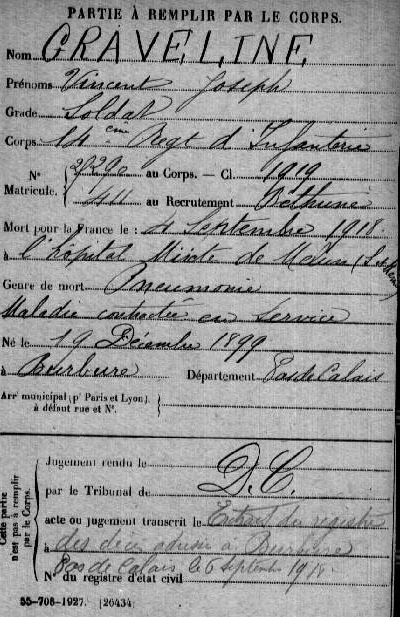 PARTIE À REMPLIR PAR LE CORPS.
Nom GRAVELINE
Prénoms Vincent Joseph
Grade Soldat
Corps 14eme Regt d'Infanterie
N° Matricule. { au Corps. — Cl. 1919
au Recrutement Béthune
Mort pour la France le : 4 Septembre 1918
à l'hôpital Mixte de Melun
Genre de mort Pneumonie
Maladie contractée en Service
Né le 19 Décembre 1899
à Burbure Département Pas de Calais
Arr' municipal (p' Paris et Lyon), à défaut rue et N°. {
Cette partie n'est pas à remplir par le Corps.
Jugement rendu le
par le Tribunal de D.C.
acte ou jugement transcrit le Extrait du registre
à des décès à Burbure
Pas de Calais le 6 septembre 1918
N° du registre d'état civil
55-708-1927. [26434]